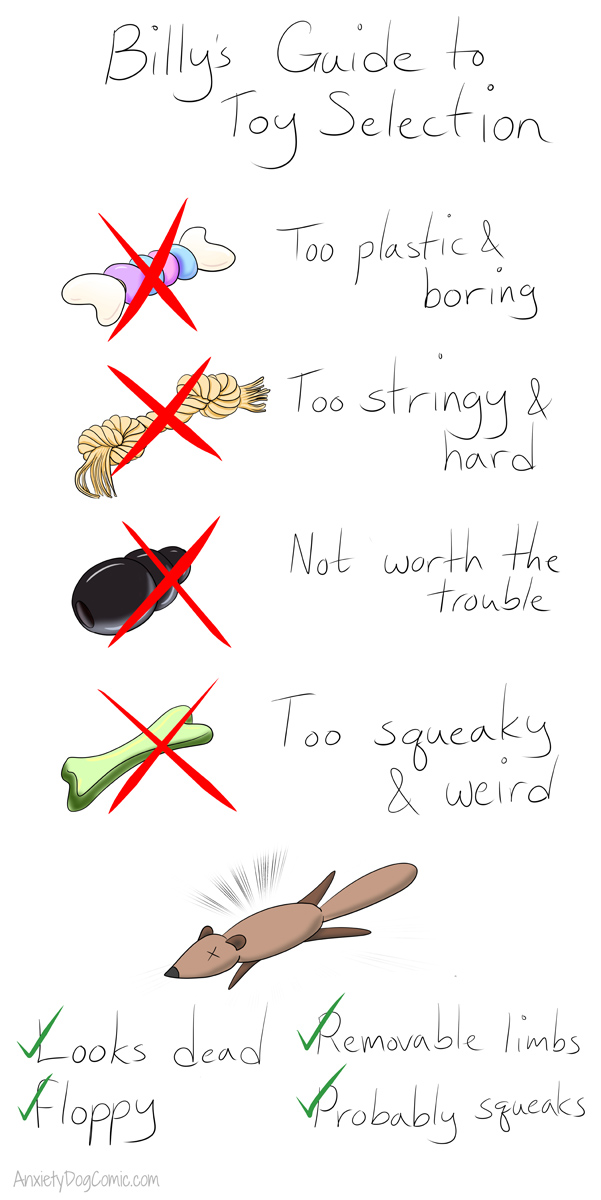 Billy's Guide to
Toy Selection
Too plastic &
boring
Too stringy &
hard
Not worth the
trouble
Too squeaky
& weird
Looks dead
Removable limbs
Floppy
Probably squeaks
AnxietyDogComic.com